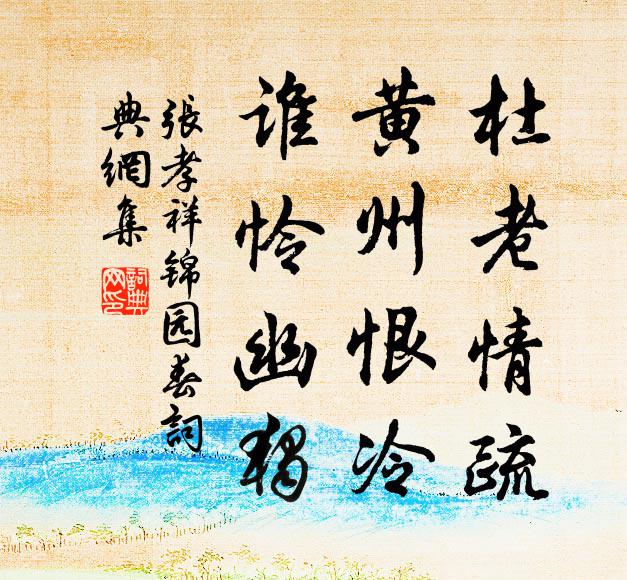 杜老情疏
黄州恨冷
谁怜幽独
张孝祥锦园春詞
典網集
詞典网印